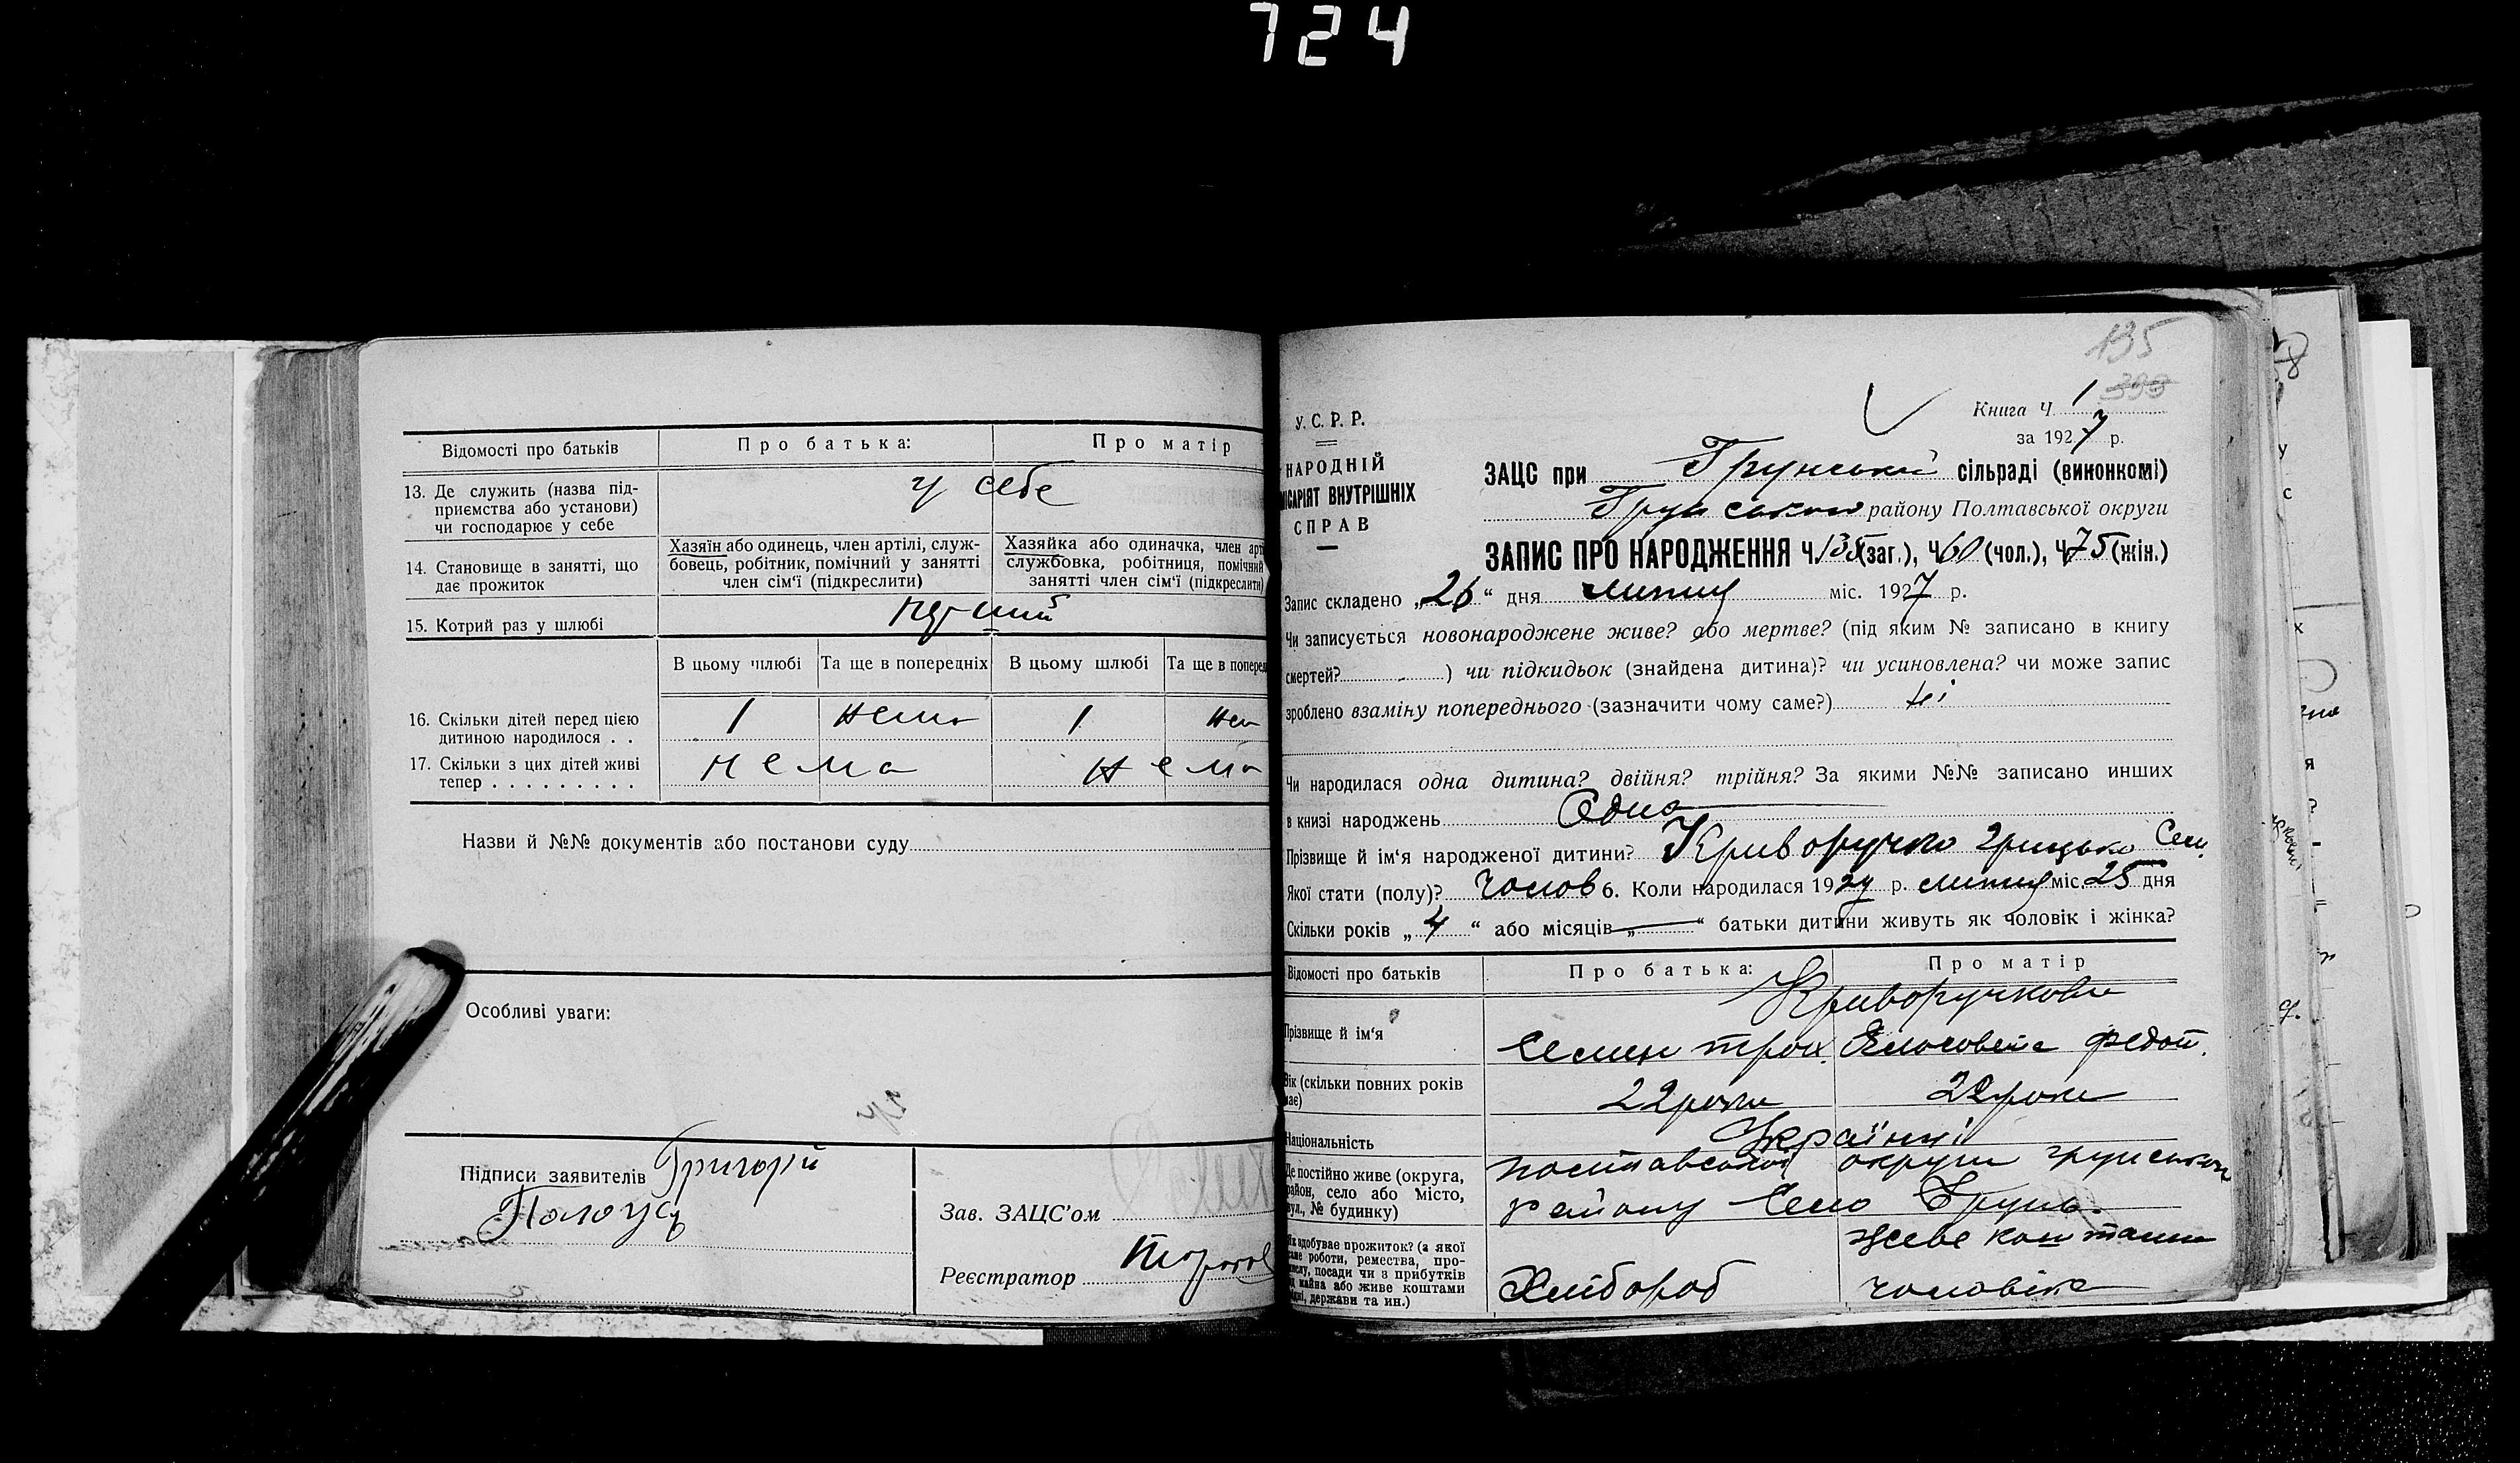 724
Відомості про батьків
Про батька:
Про матір
13. Де служить (назва під-
приємства або установи)
чи господарює у себе
у себе
14. Становище в занятті, що
дає прожиток
Хазяїн або одинець, член артілі, служ-
бовець, робітник, помічний у занятті
член сім'ї (підкреслити)
Хазяйка або одиначка, член арті
службовка, робітниця, помічний
занятті член сім'ї (підкреслити)
15. Котрий раз у шлюбі
В цьому шлюбі Та ще в попередніх В цьому шлюбі Та ще в поперед
16. Скільки дітей перед цією
дитиною народилося . .
1 нема 1 нем
17. Скільки з цих дітей живі
тепер . . . . . . . . .
нема нема
Назви й №№ документів або постанови суду
Особливі уваги:
Підписи заявителів Григорій
Зав. ЗАЦС'ом
Реєстратор
135
393
Книга Ч 1
за 1927 р.
У. С. Р. Р.
НАРОДНІЙ
ІСАРІЯТ ВНУТРІШНІХ
СПРАВ
ЗАЦС при Грунській сільраді (виконкомі)
Грунського району Полтавської округи
ЗАПИС ПРО НАРОДЖЕННЯ Ч. 135 (заг.), Ч 60 (чол.), Ч 75 (жін.)
Запис складено „26“ дня липня міс. 1927 р.
Чи записується новонароджене живе? або мертве? (під яким № записано в книгу
смертей? ) чи підкидьок (знайдена дитина)? чи усиновлена? чи може запис
зроблено взаміну попереднього (зазначити чому саме?) ні
Чи народилася одна дитина? двійня? трійня? За якими №№ записано инших
в книзі народжень Одна
Прізвище й ім'я народженої дитини? Криворучко Грицько Сем.
Якої стати (полу)? Чолов 6. Коли народилася 1927 р. липня міс. 25 дня
Скільки років „4“ або місяців „—“ батьки дитини живуть як чоловік і жінка?
Відомості про батьків
Про батька:
Про матір
Криворучкови
Прізвище й ім'я
Семен Трох. Єлосовета Федот.
Вік (скільки повних років
має)
22 роки 22 роки
Національність
Українці
Де постійно живе (округа,
район, село або місто,
вул., № будинку)
Полтавської округи Грунського
району Село Грунь.
Як здобуває прожиток? (з якої
саме роботи, ремества, про-
мислу, посади чи з прибутків
від майна або живе коштами
рідні, держави та ин.)
Хлібороб
Живе коштами
чоловіка